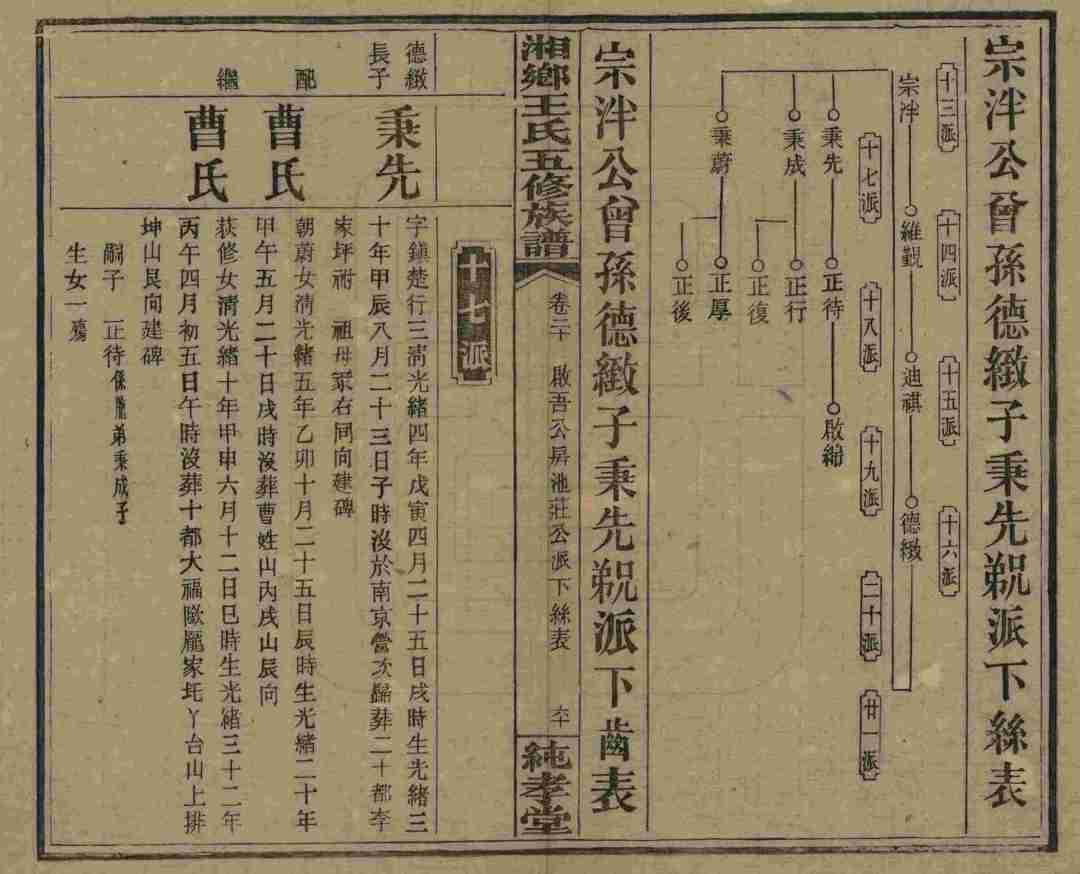 宗泮公曾孫德緻子秉先貎派下絲表
十三派
十四派
十五派
十六派
宗泮
維觀
迪祺
德緻
十七派
十八派
十九派
二十派
廿一派
秉先
正待
啟綿
秉成
正行
正復
秉蔚
正厚
正後
宗泮公曾孫德緻子秉先貎派下齒表
湘鄉王氏五修族譜
卷二十
啟吾公房池莊公派下絲表
六十
純孝堂
派
德緻
長子
秉先
字鎭楚行三淸光緒四年戊寅四月二十五日戌時生光緒三
十年甲辰八月二十三日子時沒於南京營次歸葬二十都李
家坪祔 祖母冢右同向建碑
配
曹氏
朝蔚女淸光緒五年乙卯十月二十五日辰時生光緒二十年
甲午五月二十日戌時沒葬曹姓山內戌山辰向
繼
曹氏
荻修女淸光緒十年甲申六月十二日巳時生光緒三十二年
丙午四月初五日午時沒葬十都大福歐龎家坵丫台山上排
坤山艮向建碑
嗣子 正待係胞弟秉成子
生女一殤